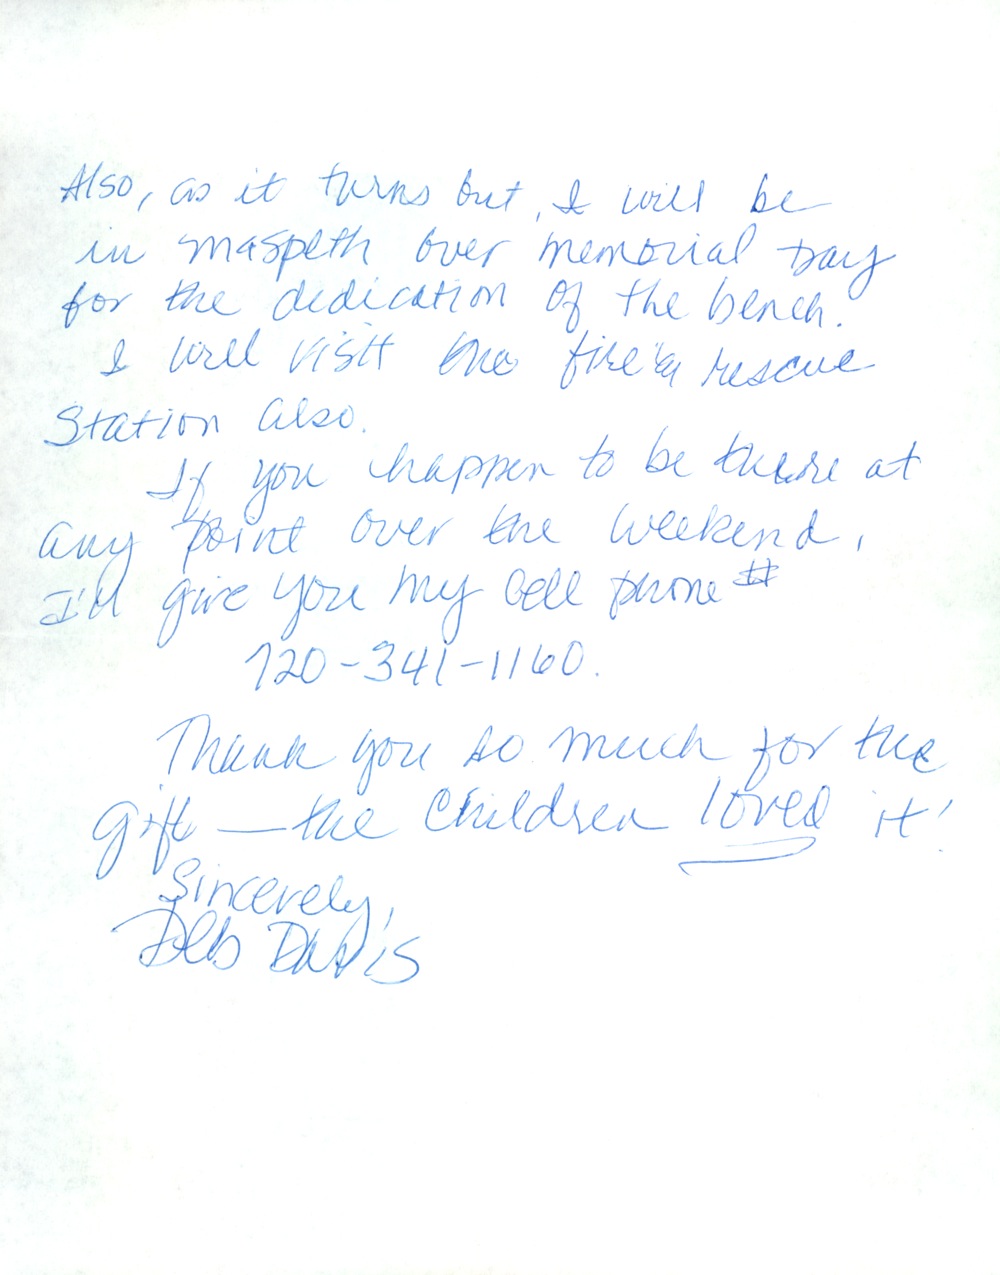 Also, as it turns out, I will be
in Maspeth over Memorial Day
for the dedication of the bench.
I will visit the fire & rescue
Station also.
If you happen to be there at
any point over the weekend,
I'll give you my cell phone #
720-341-1160.
Thank you so much for the
gift — the children loved it!
Sincerely,
Deb Davis